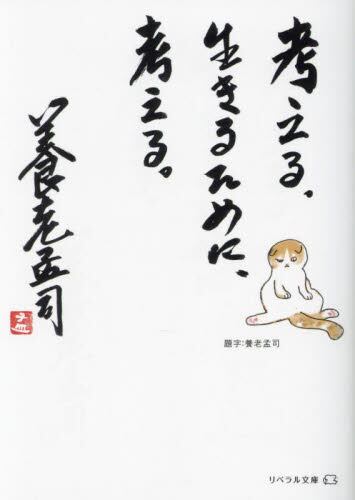 考える、
生きるために、
考える。
養老孟司
孟
題字:養老孟司
リベラル文庫